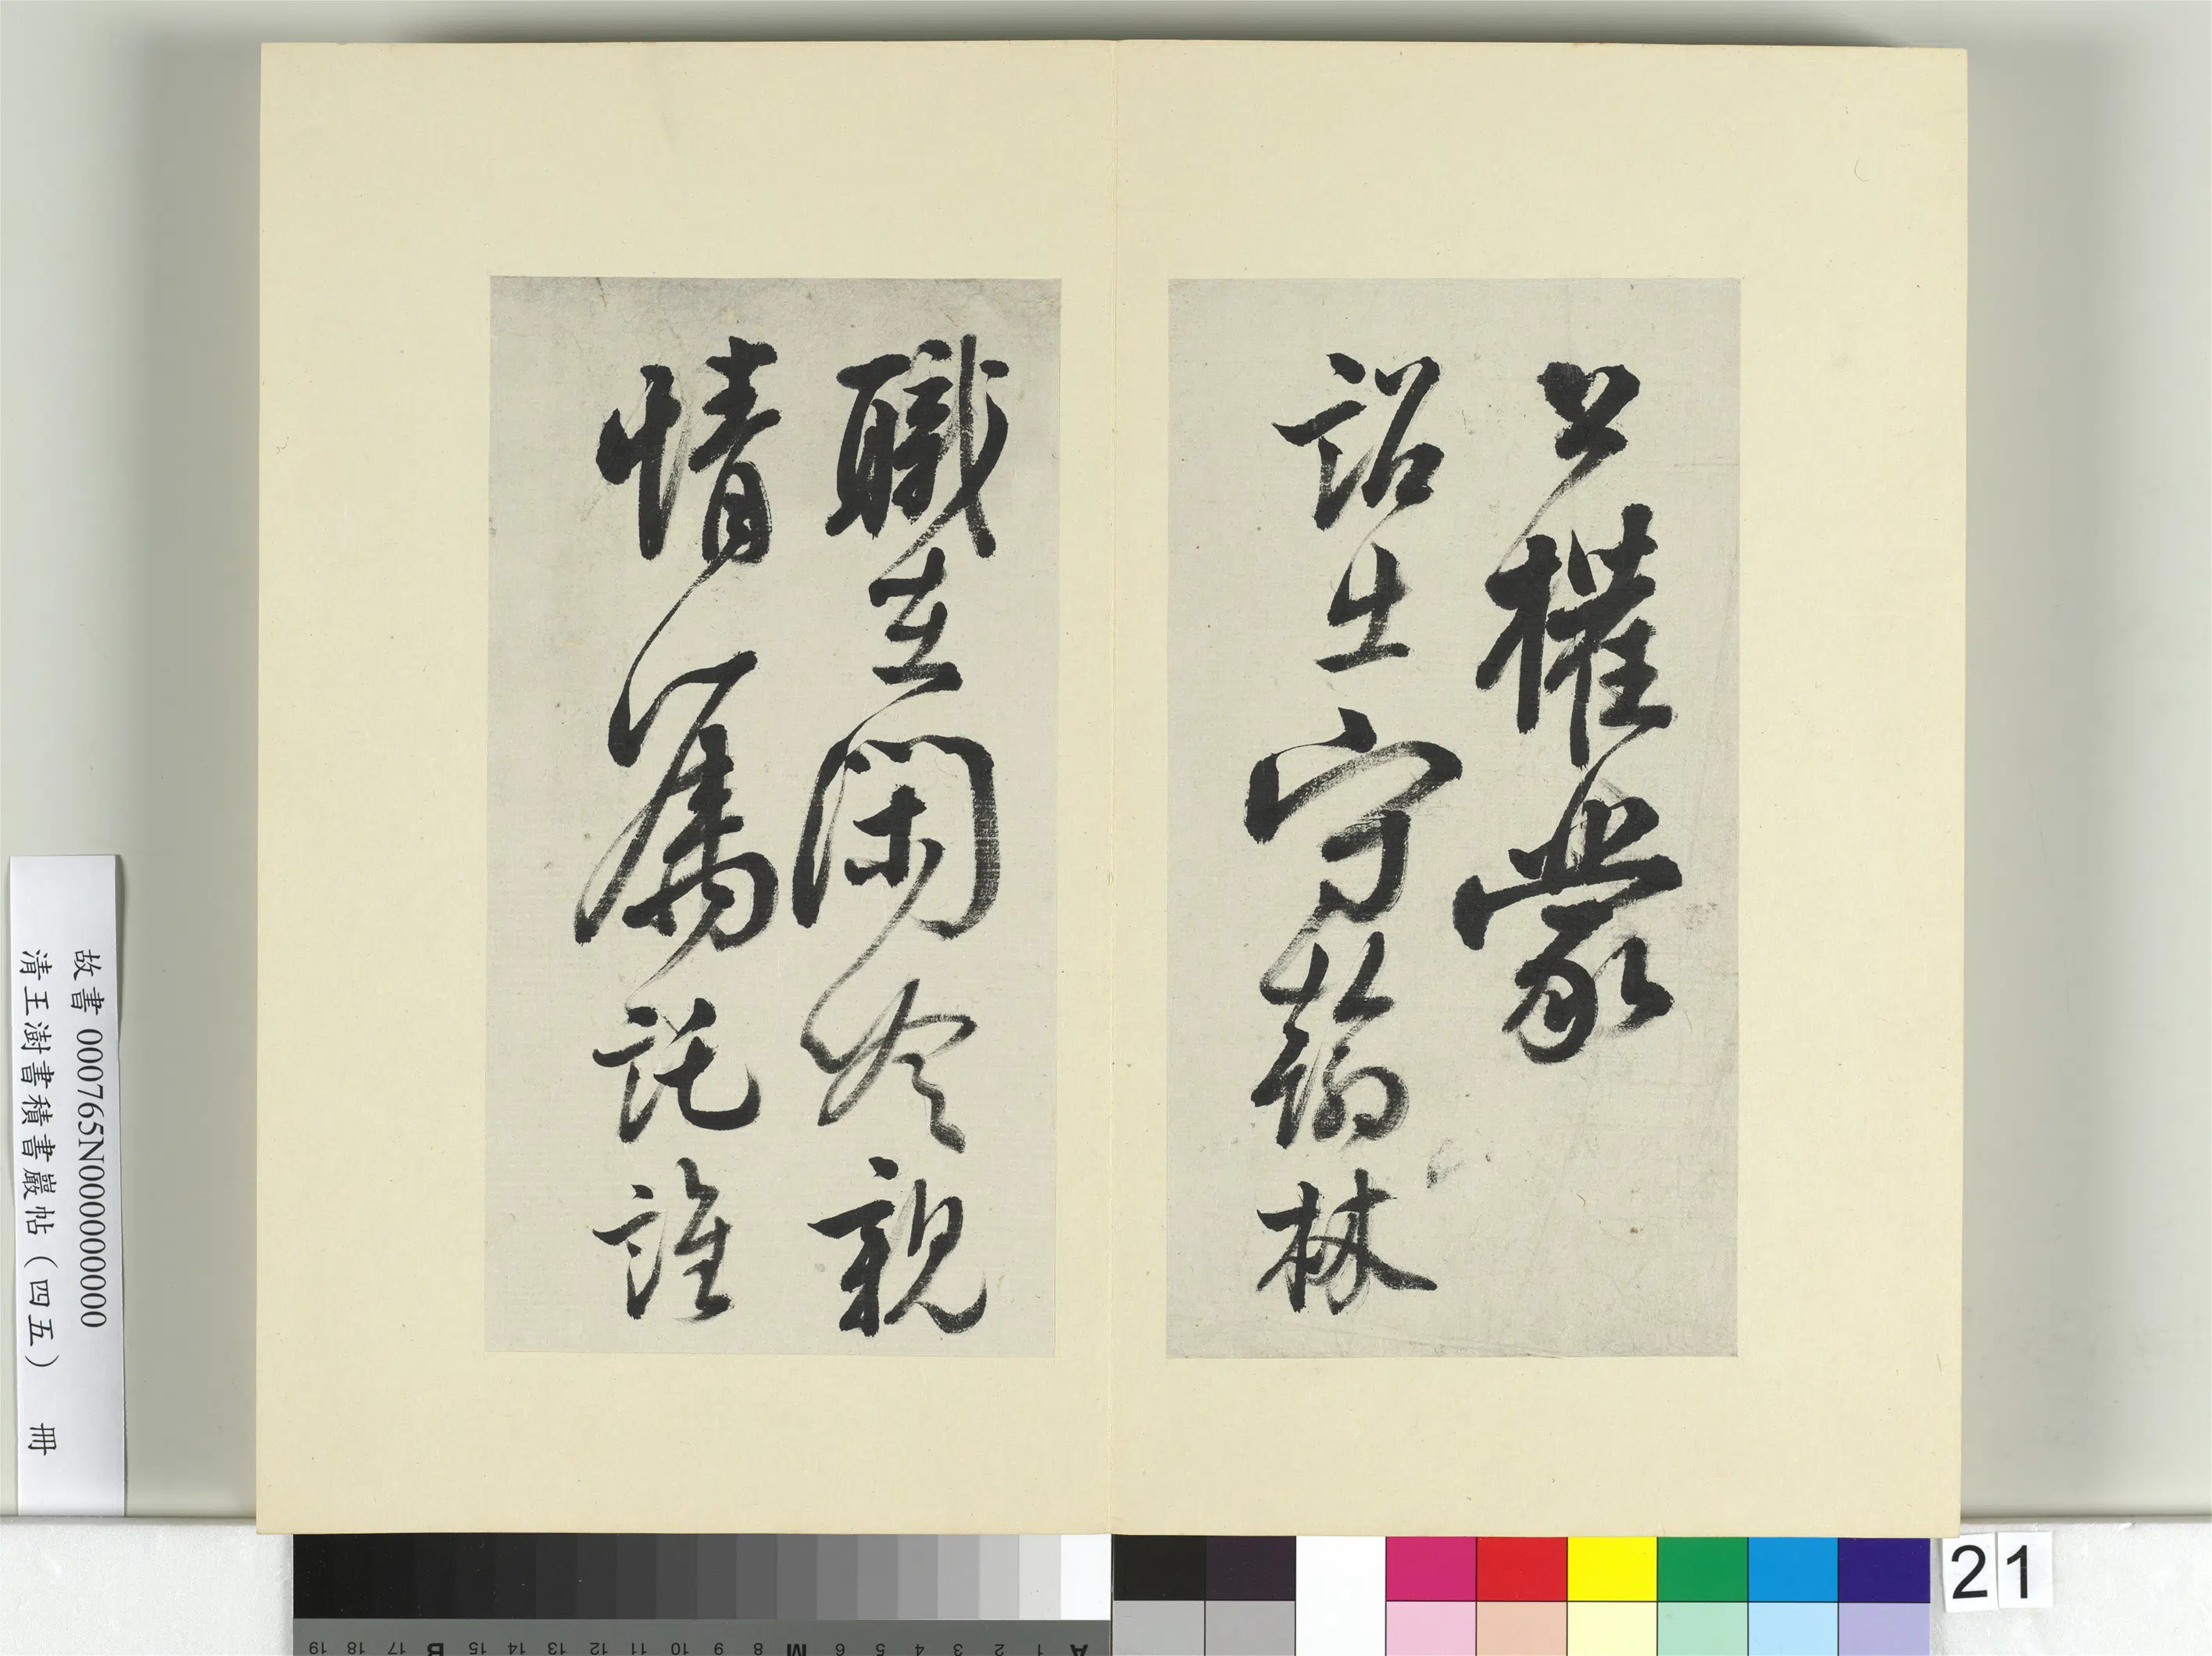 公權蒙
詔出守翰林
職在閑冷親
情囑託誰
故書 000765N000000000
清王澍書積書巖帖（四五） 冊
21
A 1 2 3 4 5 6 M 8 9 10 11 12 13 14 15 B 17 18 19